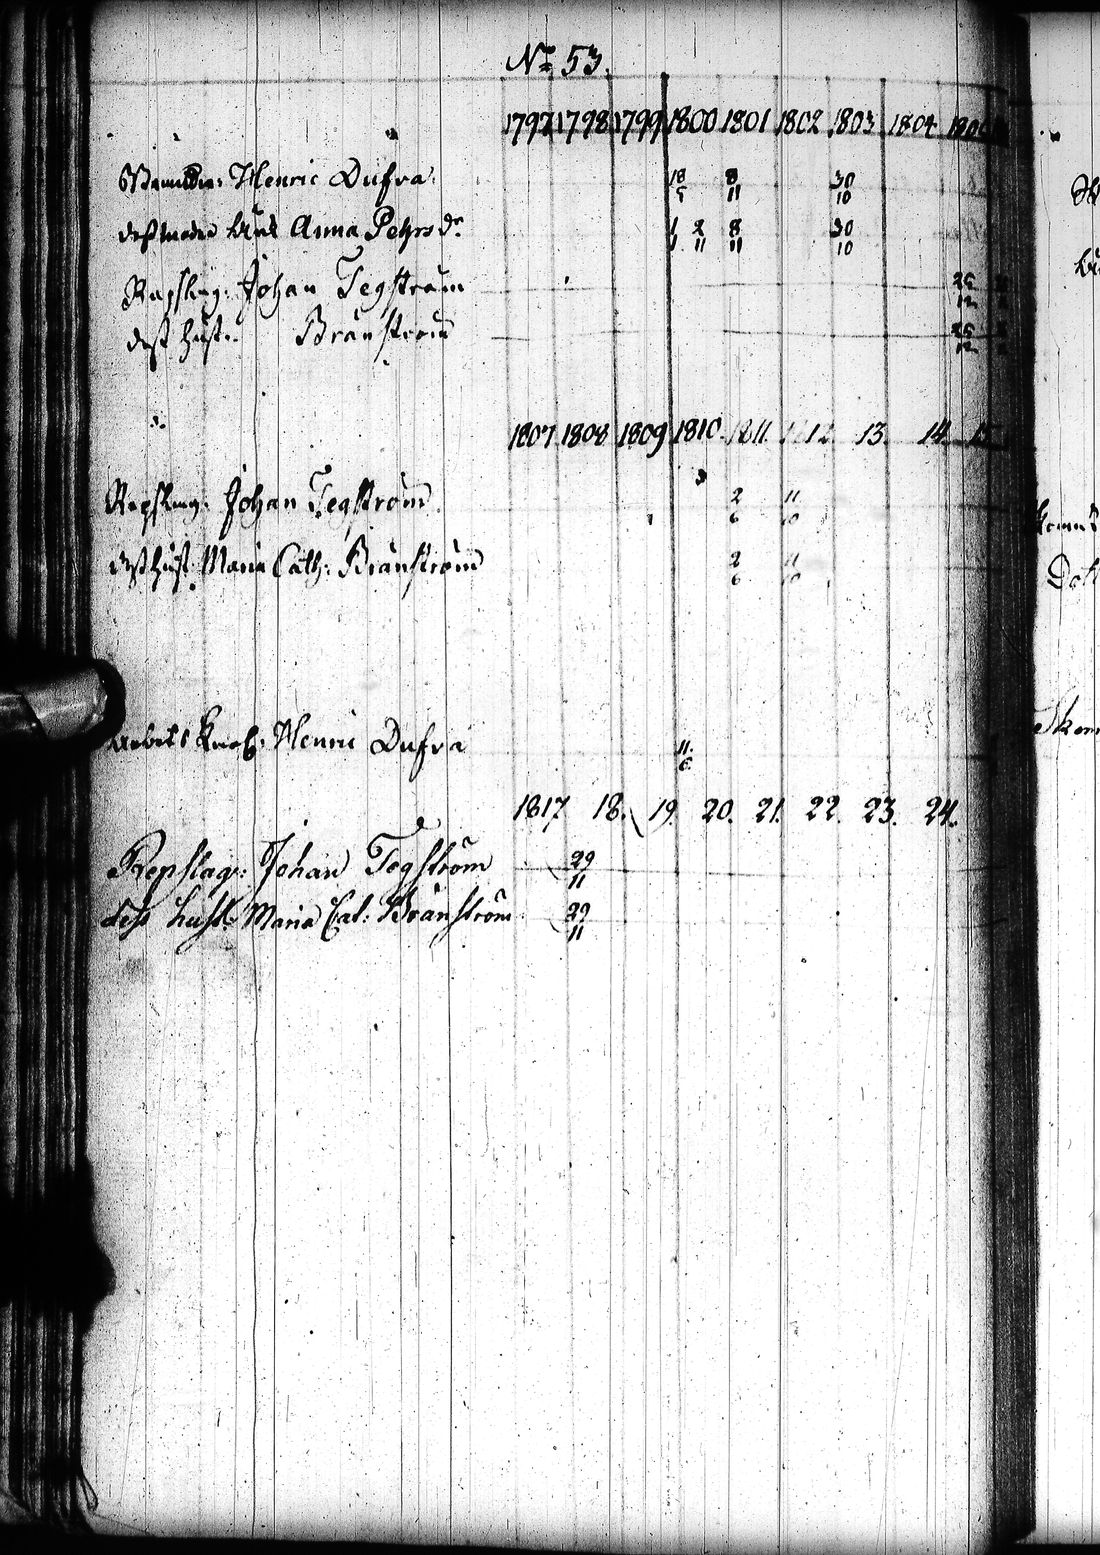 No 53.
1797 1798 1799 1800 1801 1802 1803 1804
Henric Dufva. 18/5 8/11 30/10
Anna Pehrsdr. 1/1 2/11 8/11 30/10
Repslag: Johan Tegström 25/12
dess hust: Bränström 25/12
1807 1808 1809 1810. 1811. 1812. 13. 14. 15
Repslag: Johan Tegström 2/6 11/10
dess hust. Maria Cath: Bränström 2/6 11/10
Henric Dufva 11/6
1817 18. 19. 20. 21. 22. 23. 24.
Repslag: Johan Tegström 29/11
dess hust: Maria Cat: Bränström 29/11